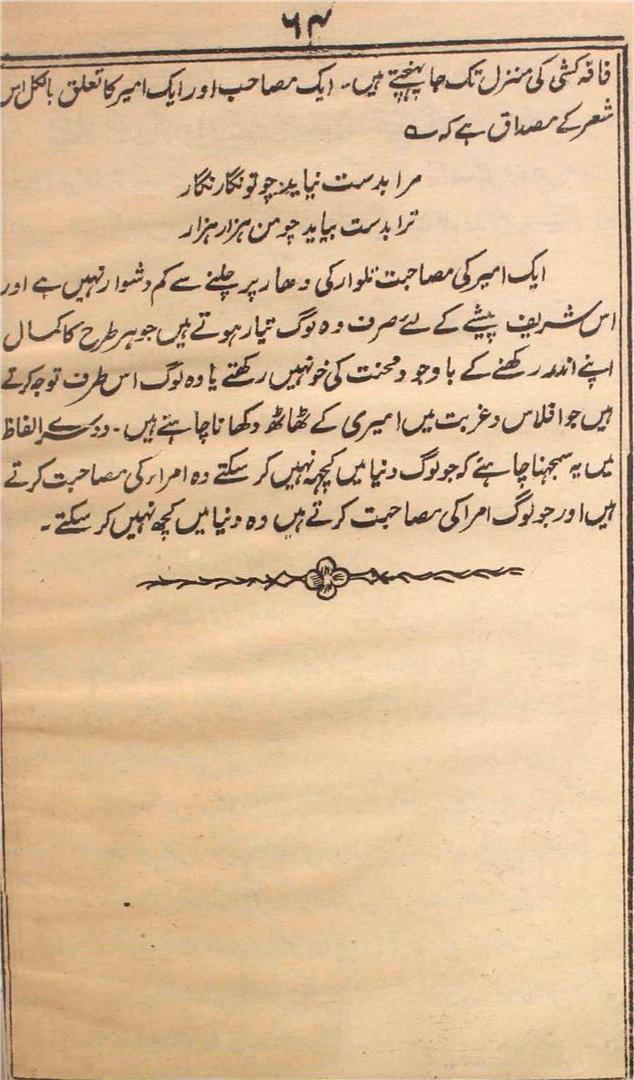 ۶۴
فاقہ کشی کی منزل تک جا پہنچتے ہیں۔ ایک مصاحب اور ایک امیر کا تعلق بالکل اس
شعر کے مصداق ہے کہ ؎
مرا بدست نیاید چو تو نگار نگار
ترا بدست بیاید چو من ہزار ہزار
ایک امیر کی مصاحبت تلوار کی دھار پر چلنے سے کم دشوار نہیں ہے اور
اس شریف پیشے کے لئے صرف وہ لوگ تیار ہوتے ہیں جو ہر طرح کا کمال
اپنے اندر رکھنے کے باوجود محنت کی خو نہیں رکھتے یا وہ لوگ اس طرف توجہ کرتے
ہیں جو افلاس و غربت میں امیری کے ٹھاٹھ دکھانا چاہتے ہیں۔ دوسرے الفاظ
میں یہ سمجھنا چاہئے کہ جو لوگ دنیا میں کچھ نہیں کر سکتے وہ امراء کی مصاحبت کرتے
ہیں اور جو لوگ امرا کی مصاحبت کرتے ہیں وہ دنیا میں کچھ نہیں کر سکتے۔